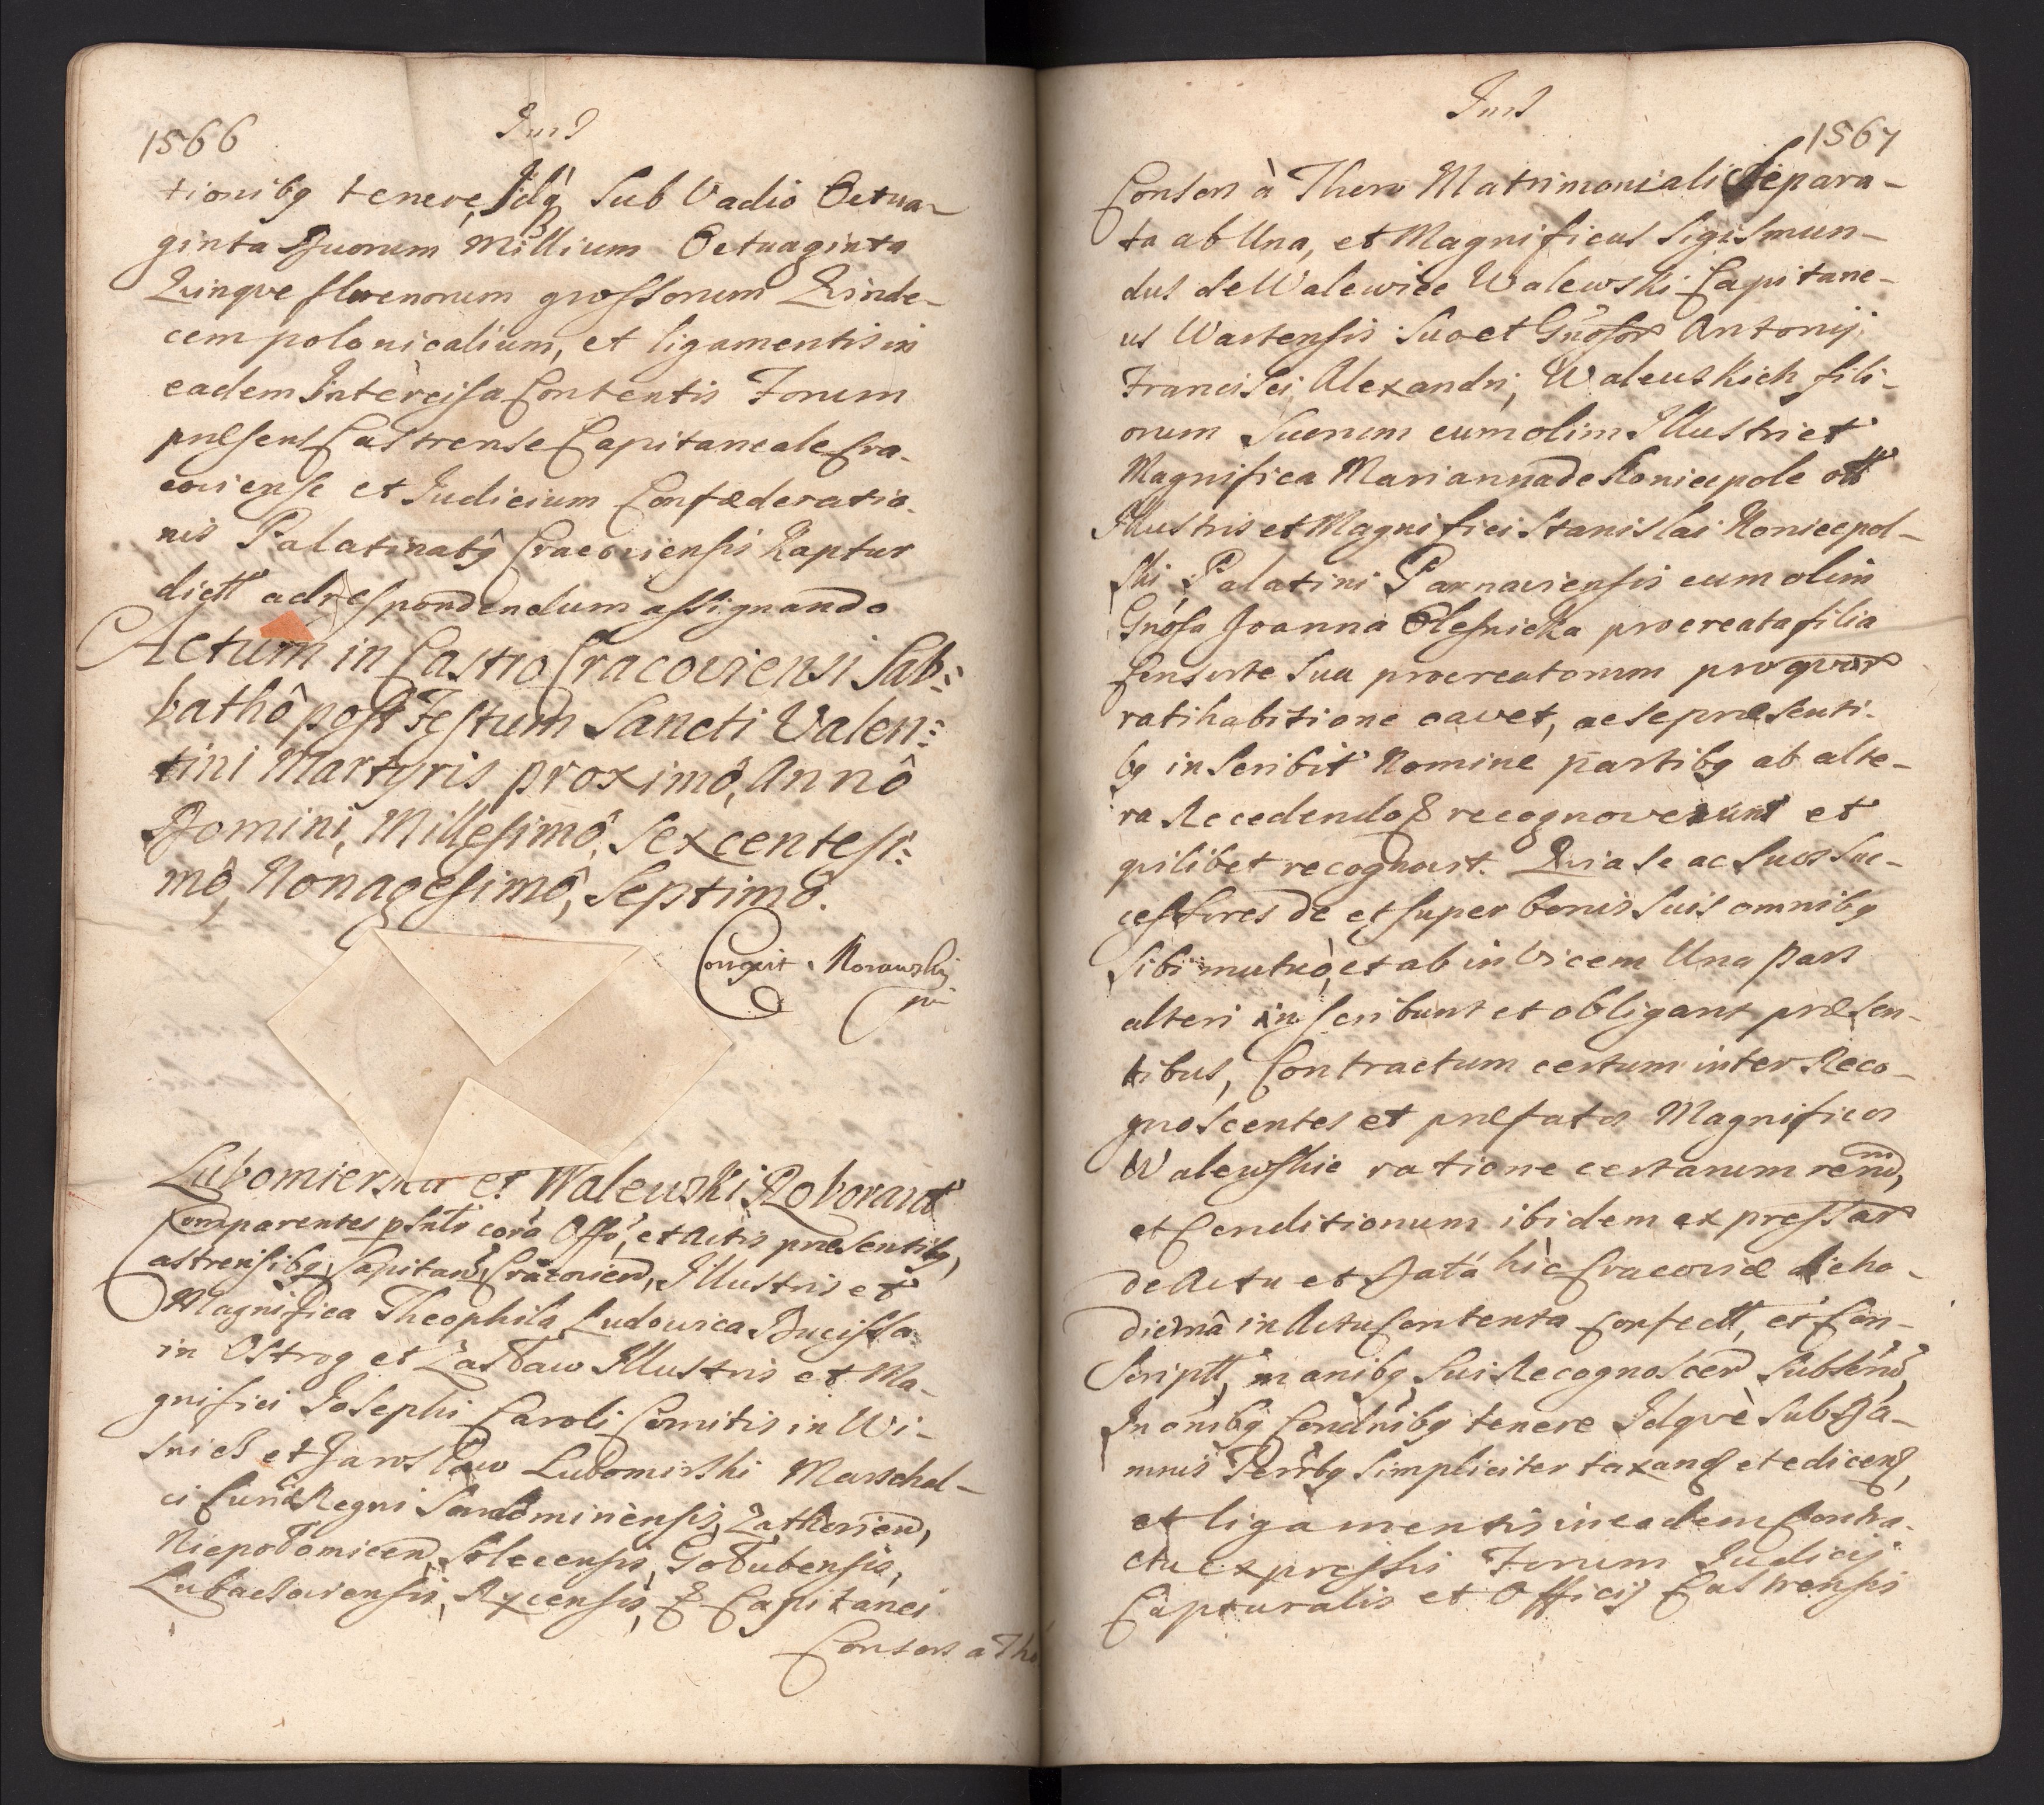 1566
Inst
tionibg tenere, Idq sub Vadio Octua-
ginta Duorum Millium Octuaginta
Quinqve florenorum grossorum Quinde-
cem polonicalium, et ligamentis in
eadem Intercisa Contentis Forum
præsens Castrense Capitaneale Cra-
coviense et Iudicium Confæderatio-
nis Palatinatg Cracoviensis Kaptur
dictt ad respondendum assignando
Actum in Castro Cracoviensi Sab:
bathô post Festum Sancti Valen:
tini Martyris proximô, Annô
Domini, Millesimô, Sexcentesi:
mô, Nonagesimô, Septimô.
Correxit
Lubomierska et Walewski Roborant
Comparentes psnts corã Offo, et Actis præsentibg,
Castrensibg, Capitan, Cracovien, Illustris et
Magnifica Theophila Ludovica Ducissa
in Ostrog et Zasław Illustris et Ma-
gnifici Iosephi Caroli Comitis in Wi-
snicz et Jarosław Lubomirski Marschal-
ci Curiæ Regni Sandominensis, Zathorien,
Niepołomicen, Solecensis, Gołubensis,
Lubaczoviensis, Rycensis, & Capitanei
Consors a Tho
Inst
1567
Consors à Thoro Matrimoniali Separa-
ta ab Una, et Magnificus Sigismun-
dus de Walewice Walewski Capitane-
us Wartensis Suo et Gnosor Antonij
Francisci, Alexandri, Walewskich fili-
orum Suorum cum olim Illustri et
Magnifica Marianna de Koniecpole ott
Illustris et Magnifici Stanislai Koniecpol-
ski Palatini Parnaviensis cum olim
Gnosa Joanna Olesnicka procreata filia
Consorte Sua procreatorum pro qvor
ratihabitione cavet, ac se præsenti-
bg inscribit Nomine partibg ab alte-
ra Recedendo & recognoverunt et
qvilibet recognovit. Quia se ac Suos Suc-
cessores de et super bonis Suis omnibg
Sibi mutuò, et ab in vicem Una pars
alteri inscribunt et obligant præsen-
tibus, Contractum certum inter Reco-
gnoscentes et præfatos Magnificos
Walewskie ratione certarum rerum,
et Conditionum ibidem expressar
de Actu et Datâ hic Cracoviæ die ho-
diernâ in Actu Contenta Confectt, et Con-
scriptt, manibg Sui Recognoscen Subscrip,
In omibg Condnibg tenere Idqvè sub Da-
mnis Terrbg Simpliciter taxand et edicend,
et ligamentis in eadem Contra-
ctu expressis Forum Iudicij
Capturalis et Officij Castrensis